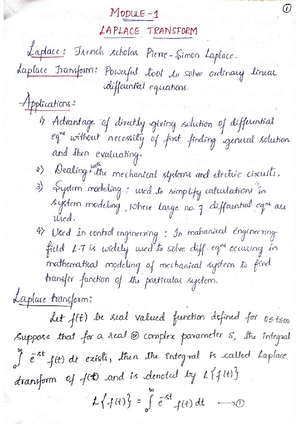 1
MODULE-1
LAPLACE TRANSFORM
Laplace: French scholar Pierre-Simon Laplace.
Laplace Transform: Powerful tool to solve ordinary linear
differential equations.
Applications:
1) Advantage of directly giving solution of differential
eqns without necessity of first finding general solution
and then evaluating.
2) Dealing with the mechanical systems and electric circuits.
3) System modeling: used to simplify calculations in
system modeling, where large no. of differential eqns are
used.
4) Used in control engineering: In mahanical engineering
field L.T is widely used to solve diff. eqns occuring in
mathematical modeling of mechanical system to find
transfer function of the particular system.
Laplace transform:
Let f(t) be real valued function defined for 0≤t≤∞
Suppose that for a real or complex parameter s, the integral
∫₀^∞ e^-st f(t) dt exists, then the integral is called Laplace
transform of f(t) and is denoted by L{f(t)}
L{f(t)} = ∫₀^∞ e^-st f(t) dt → 1